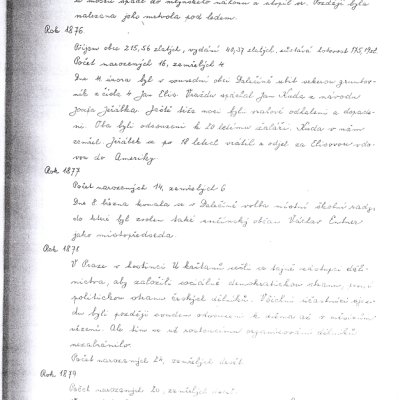 z mostu spadl do mlýnského náhonu a utopil se. Později byla
nalezena jeho mrtvola pod ledem.
Rok 1876
Příjem obce 215,56 zlatých, vydání 40,37 zlatých, zůstává hotovost 175,19 zl.
Počet narozených 16, zemřelých 4
Dne 4. února byl v sousední obci Dalečíně ubit sekerou
z čísla 4 Jan Elis. Vraždu spáchal Jan Kuda z návodu
Josefa Jeřábka. Ještě téže noci byli vrahové odhaleni a dopade-
ni. Oba byli odsouzeni k 20 letému žaláři. Kuda v něm
zemřel Jeřábek se po 18 letech vrátil a odjel za Elisovou vdo-
vou do Ameriky
Rok 1877
Počet narozených 14, zemřelých 6
Dne 8. března konala se v Dalečíně volba místní školní rady,
do které byl zvolen také občan Václav
jako místopředseda.
Rok 1878
V Praze v hostinci U kaštanu sešli se tajně zástupci děl-
nictva, aby založili sociálně demokratickou stranu,
politickou stranu českých dělníků. Všichni účastníci sjez-
du byli později soudem odsouzeni k
vězení. Ale tím se už organisování dělníků
nezabránilo.
Počet narozených 24, zemřelých devět.
Rok 1879
Počet narozených 20, zemřelých